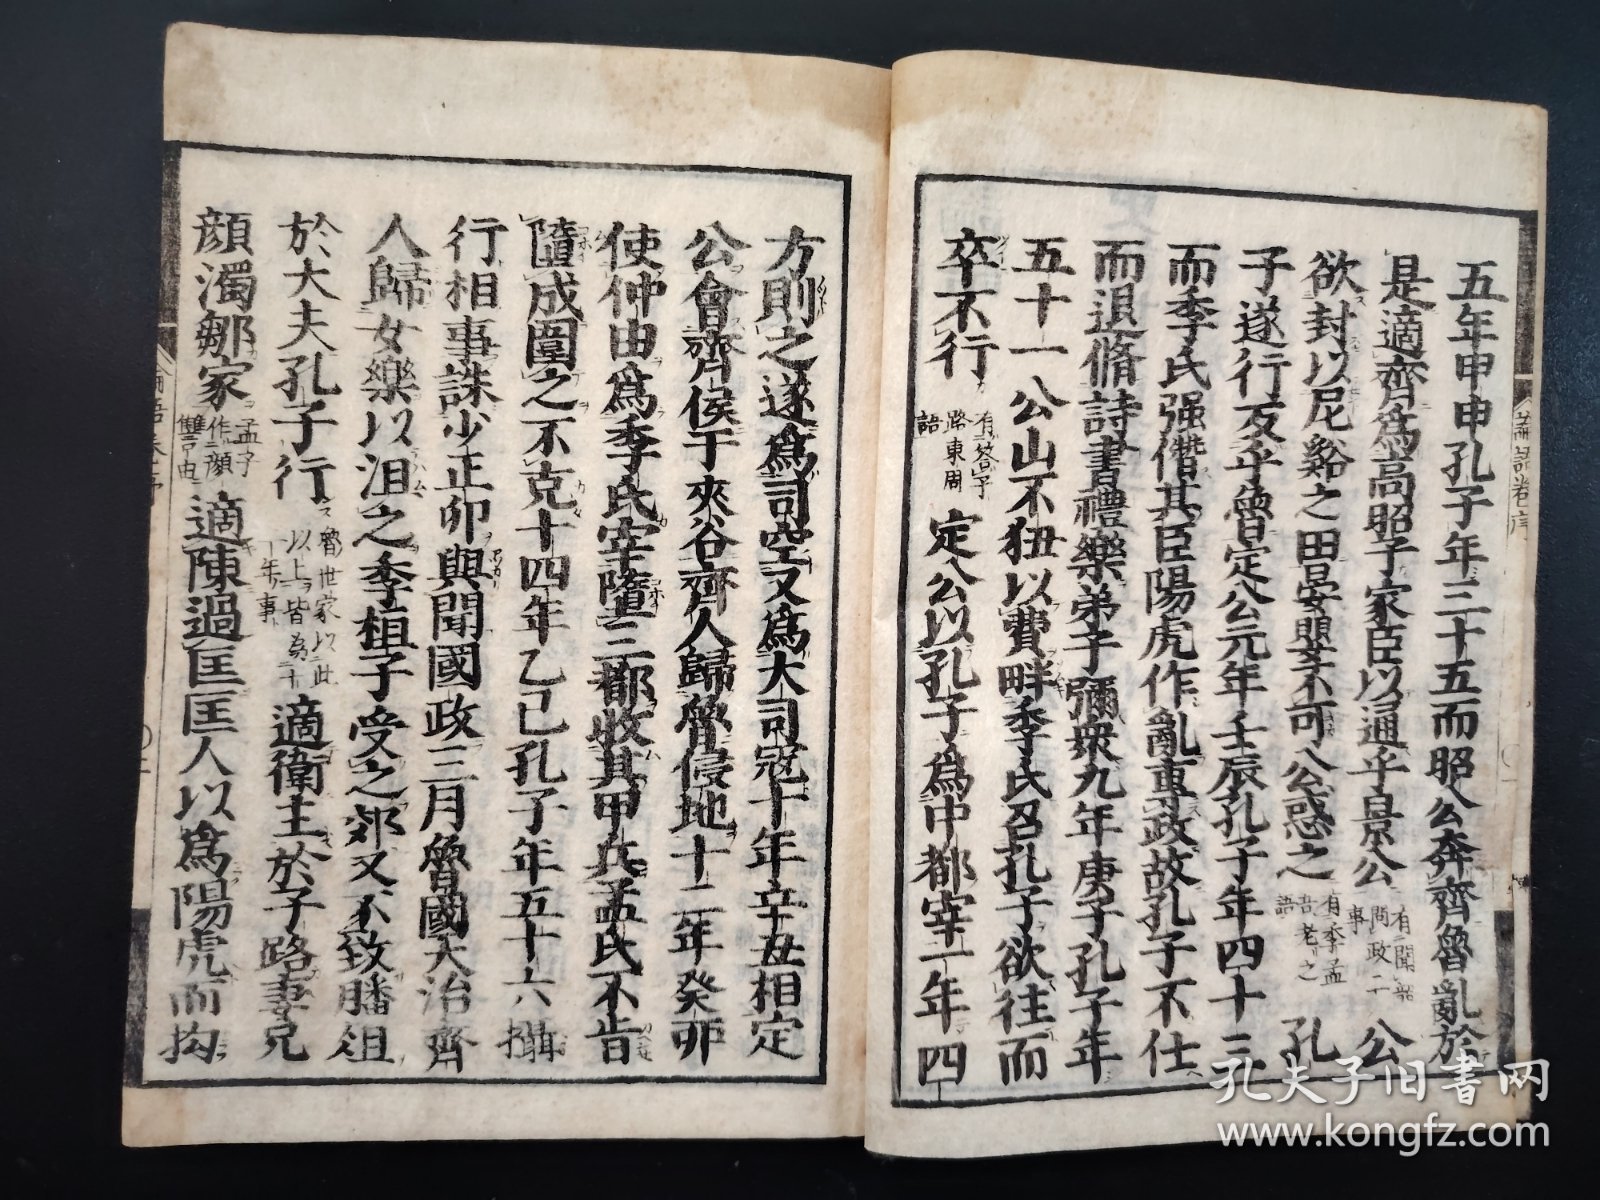 五年甲申孔子年三十五而昭公奔齊魯亂於
是適齊爲高昭子家臣以通乎景公 有聞韶問政二事 公
欲封以尼谿之田晏嬰不可公惑之 有季孟吾老之語 孔
子遂行反乎魯定公元年壬辰孔子年四十三
而季氏强僭其臣陽虎作亂專政故孔子不仕
而退脩詩書禮樂弟子彌衆九年庚子孔子年
五十一公山不狃以費畔季氏召孔子欲往而
卒不行 有答子路東周語 定公以孔子爲中都宰一年四
方則之遂爲司空又爲大司冦十年辛丑相定
公會齊侯于夾谷齊人歸魯侵地十二年癸卯
使仲由爲季氏宰隳三都收其甲兵孟氏不肯
隳成圍之不克十四年乙巳孔子年五十六攝
行相事誅少正卯與聞國政三月魯國大治齊
人歸女樂以沮之季桓子受之郊又不致膰俎
於大夫孔子行 魯世家以此以上皆爲十二年事 適衛主於子路妻兄
顔濁鄒家 孟子作顔讐由 適陳過匡匡人以爲陽虎而拘
論語卷序
孔夫子旧书网
www.kongfz.com